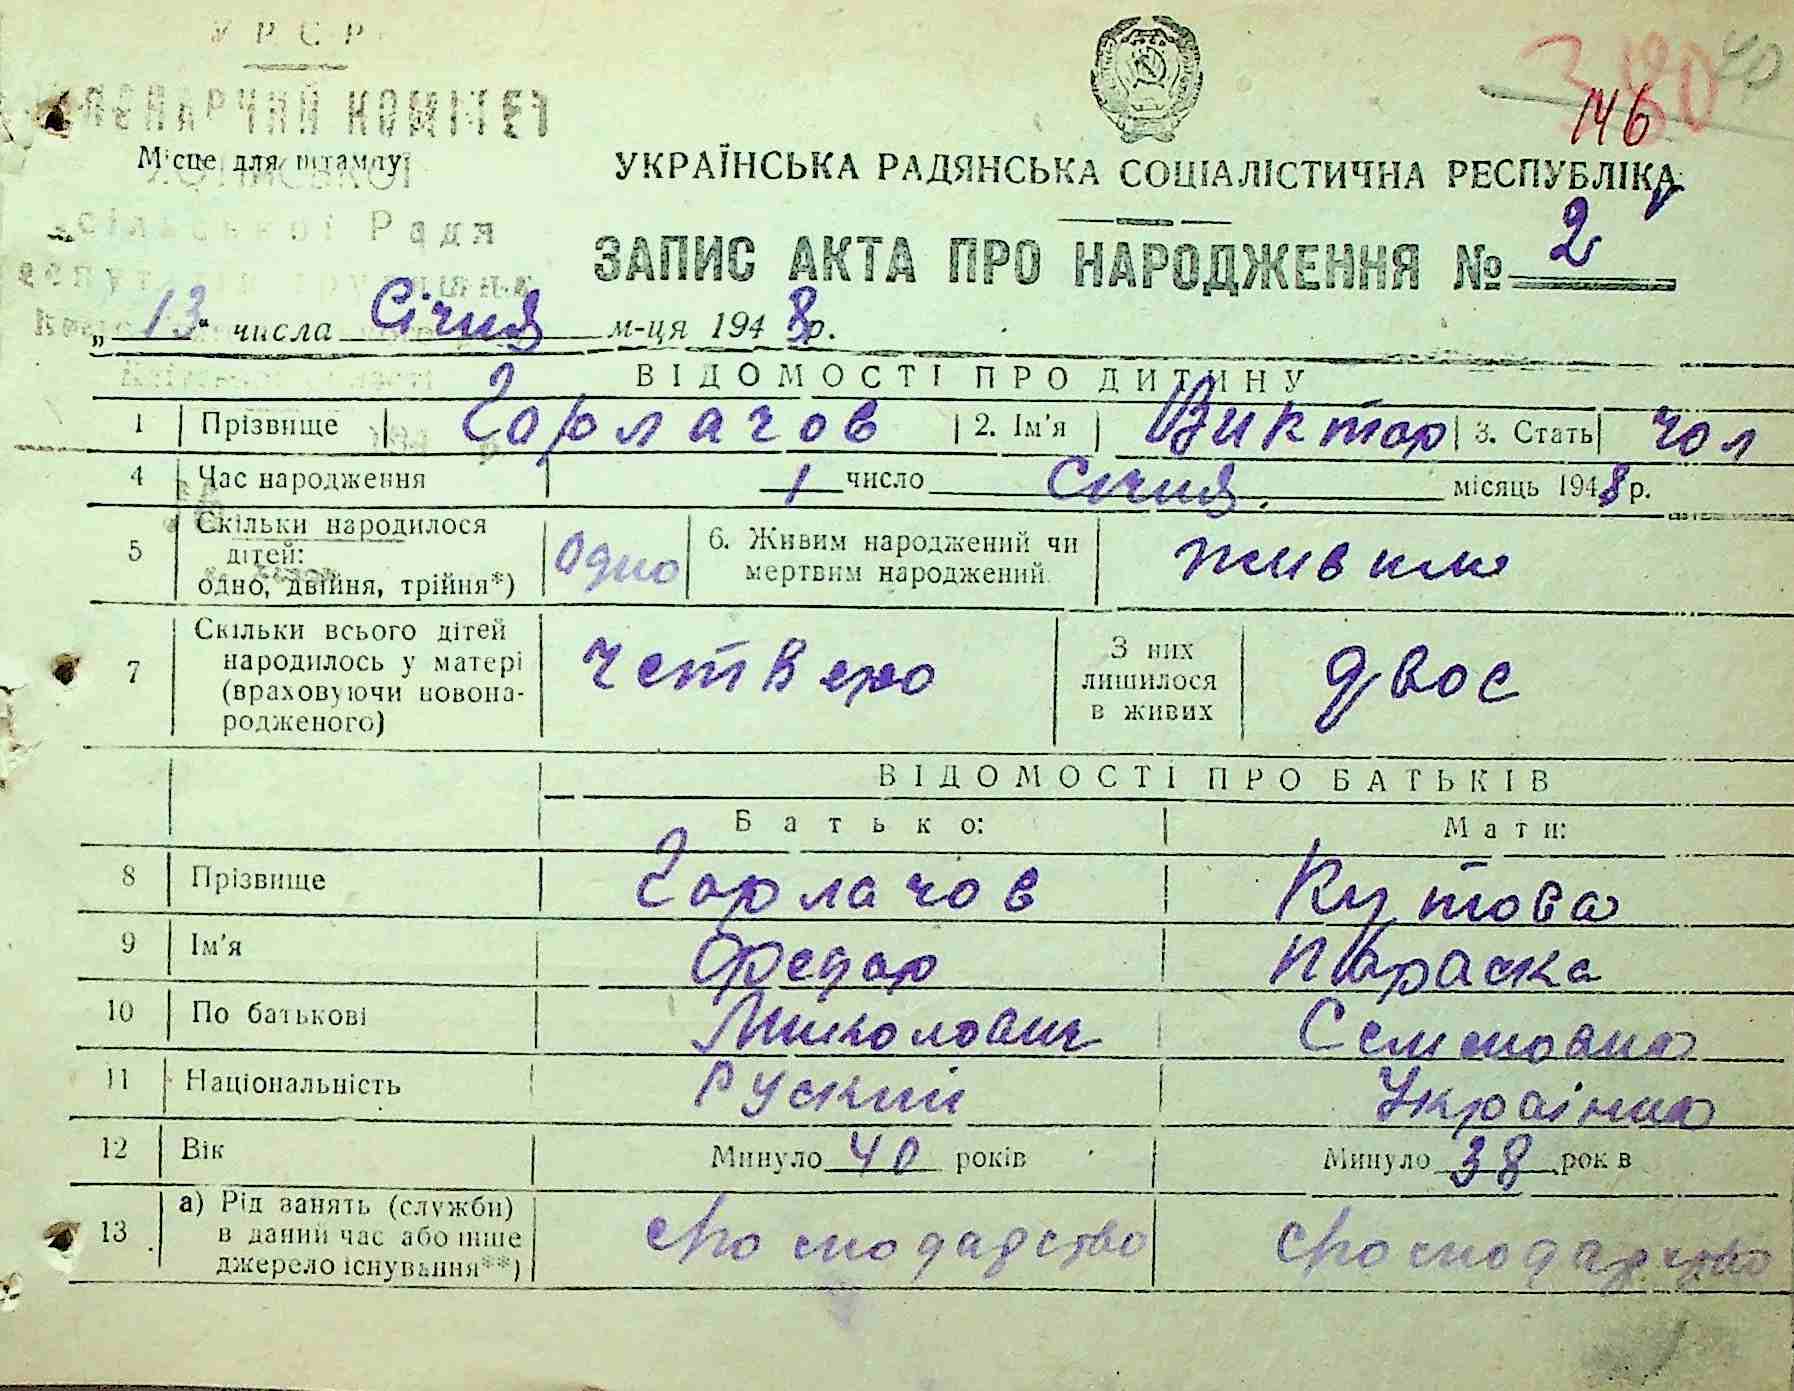 У Р С Р
КОМІТЕТ
Місце для штампу
сільської Ради
380
40
146
УКРАЇНСЬКА РАДЯНСЬКА СОЦІАЛІСТИЧНА РЕСПУБЛІКА
ЗАПИС АКТА ПРО НАРОДЖЕННЯ № 2
„13“ числа Січня м-ця 1948р.
ВІДОМОСТІ ПРО ДИТИНУ
1 Прізвище Горлачов 2. Ім'я Виктор 3. Стать чол
4 Час народження 1 число Січня місяць 1948р.
5 Скільки народилося дітей: одно, двійня, трійня*) Одно 6. Живим народжений чи мертвим народжений. живим
7 Скільки всього дітей народилось у матері (враховуючи новонародженого) четверо З них лишилося в живих двоє
ВІДОМОСТІ ПРО БАТЬКІВ
Батько: Мати:
8 Прізвище Горлачов Кутова
9 Ім'я Федор Параска
10 По батькові Миколович Семеновна
11 Національність Руский Українка
12 Вік Минуло 40 років Минуло 38 років
13 а) Рід занять (служби) в даний час або інше джерело існування**)